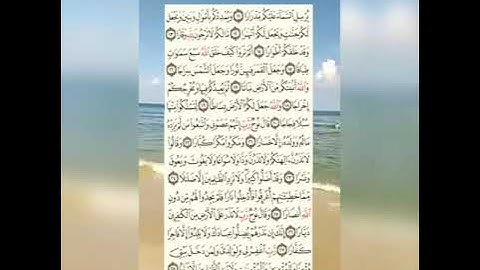 يُرْسِلِ ٱلسَّمَآءَ عَلَيْكُم مِّدْرَارًا ١١ وَيُمْدِدْكُم بِأَمْوَٰلٍ وَبَنِينَ وَيَجْعَل
لَّكُمْ جَنَّٰتٍ وَيَجْعَل لَّكُمْ أَنْهَٰرًا ١٢ مَّا لَكُمْ لَا تَرْجُونَ لِلَّهِ وَقَارًا ١٣
وَقَدْ خَلَقَكُمْ أَطْوَارًا ١٤ أَلَمْ تَرَوْا۟ كَيْفَ خَلَقَ ٱللَّهُ سَبْعَ سَمَٰوَٰتٍ
طِبَاقًا ١٥ وَجَعَلَ ٱلْقَمَرَ فِيهِنَّ نُورًا وَجَعَلَ ٱلشَّمْسَ سِرَاجًا ١٦
وَٱللَّهُ أَنۢبَتَكُم مِّنَ ٱلْأَرْضِ نَبَاتًا ١٧ ثُمَّ يُعِيدُكُمْ فِيهَا وَيُخْرِجُكُمْ
إِخْرَاجًا ١٨ وَٱللَّهُ جَعَلَ لَكُمُ ٱلْأَرْضَ بِسَاطًا ١٩ لِّتَسْلُكُوا۟ مِنْهَا
سُبُلًا فِجَاجًا ٢٠ قَالَ نُوحٌ رَّبِّ إِنَّهُمْ عَصَوْنِى وَٱتَّبَعُوا۟ مَن لَّمْ يَزِدْهُ
مَالُهُۥ وَوَلَدُهُۥٓ إِلَّا خَسَارًا ٢١ وَمَكَرُوا۟ مَكْرًا كُبَّارًا ٢٢ وَقَالُوا۟
لَا تَذَرُنَّ ءَالِهَتَكُمْ وَلَا تَذَرُنَّ وَدًّا وَلَا سُوَاعًا وَلَا يَغُوثَ وَيَعُوقَ
وَنَسْرًا ٢٣ وَقَدْ أَضَلُّوا۟ كَثِيرًا وَلَا تَزِدِ ٱلظَّٰلِمِينَ إِلَّا ضَلَٰلًا ٢٤
مِّمَّا خَطِيٓـَٰٔتِهِمْ أُغْرِقُوا۟ فَأُدْخِلُوا۟ نَارًا فَلَمْ يَجِدُوا۟ لَهُم مِّن دُونِ
ٱللَّهِ أَنصَارًا ٢٥ وَقَالَ نُوحٌ رَّبِّ لَا تَذَرْ عَلَى ٱلْأَرْضِ مِنَ ٱلْكَٰفِرِينَ
دَيَّارًا ٢٦ إِنَّكَ إِن تَذَرْهُمْ يُضِلُّوا۟ عِبَادَكَ وَلَا يَلِدُوٓا۟ إِلَّا فَاجِرًا
كَفَّارًا ٢٧ رَّبِّ ٱغْفِرْ لِى وَلِوَٰلِدَىَّ وَلِمَن دَخَلَ بَيْتِىَ